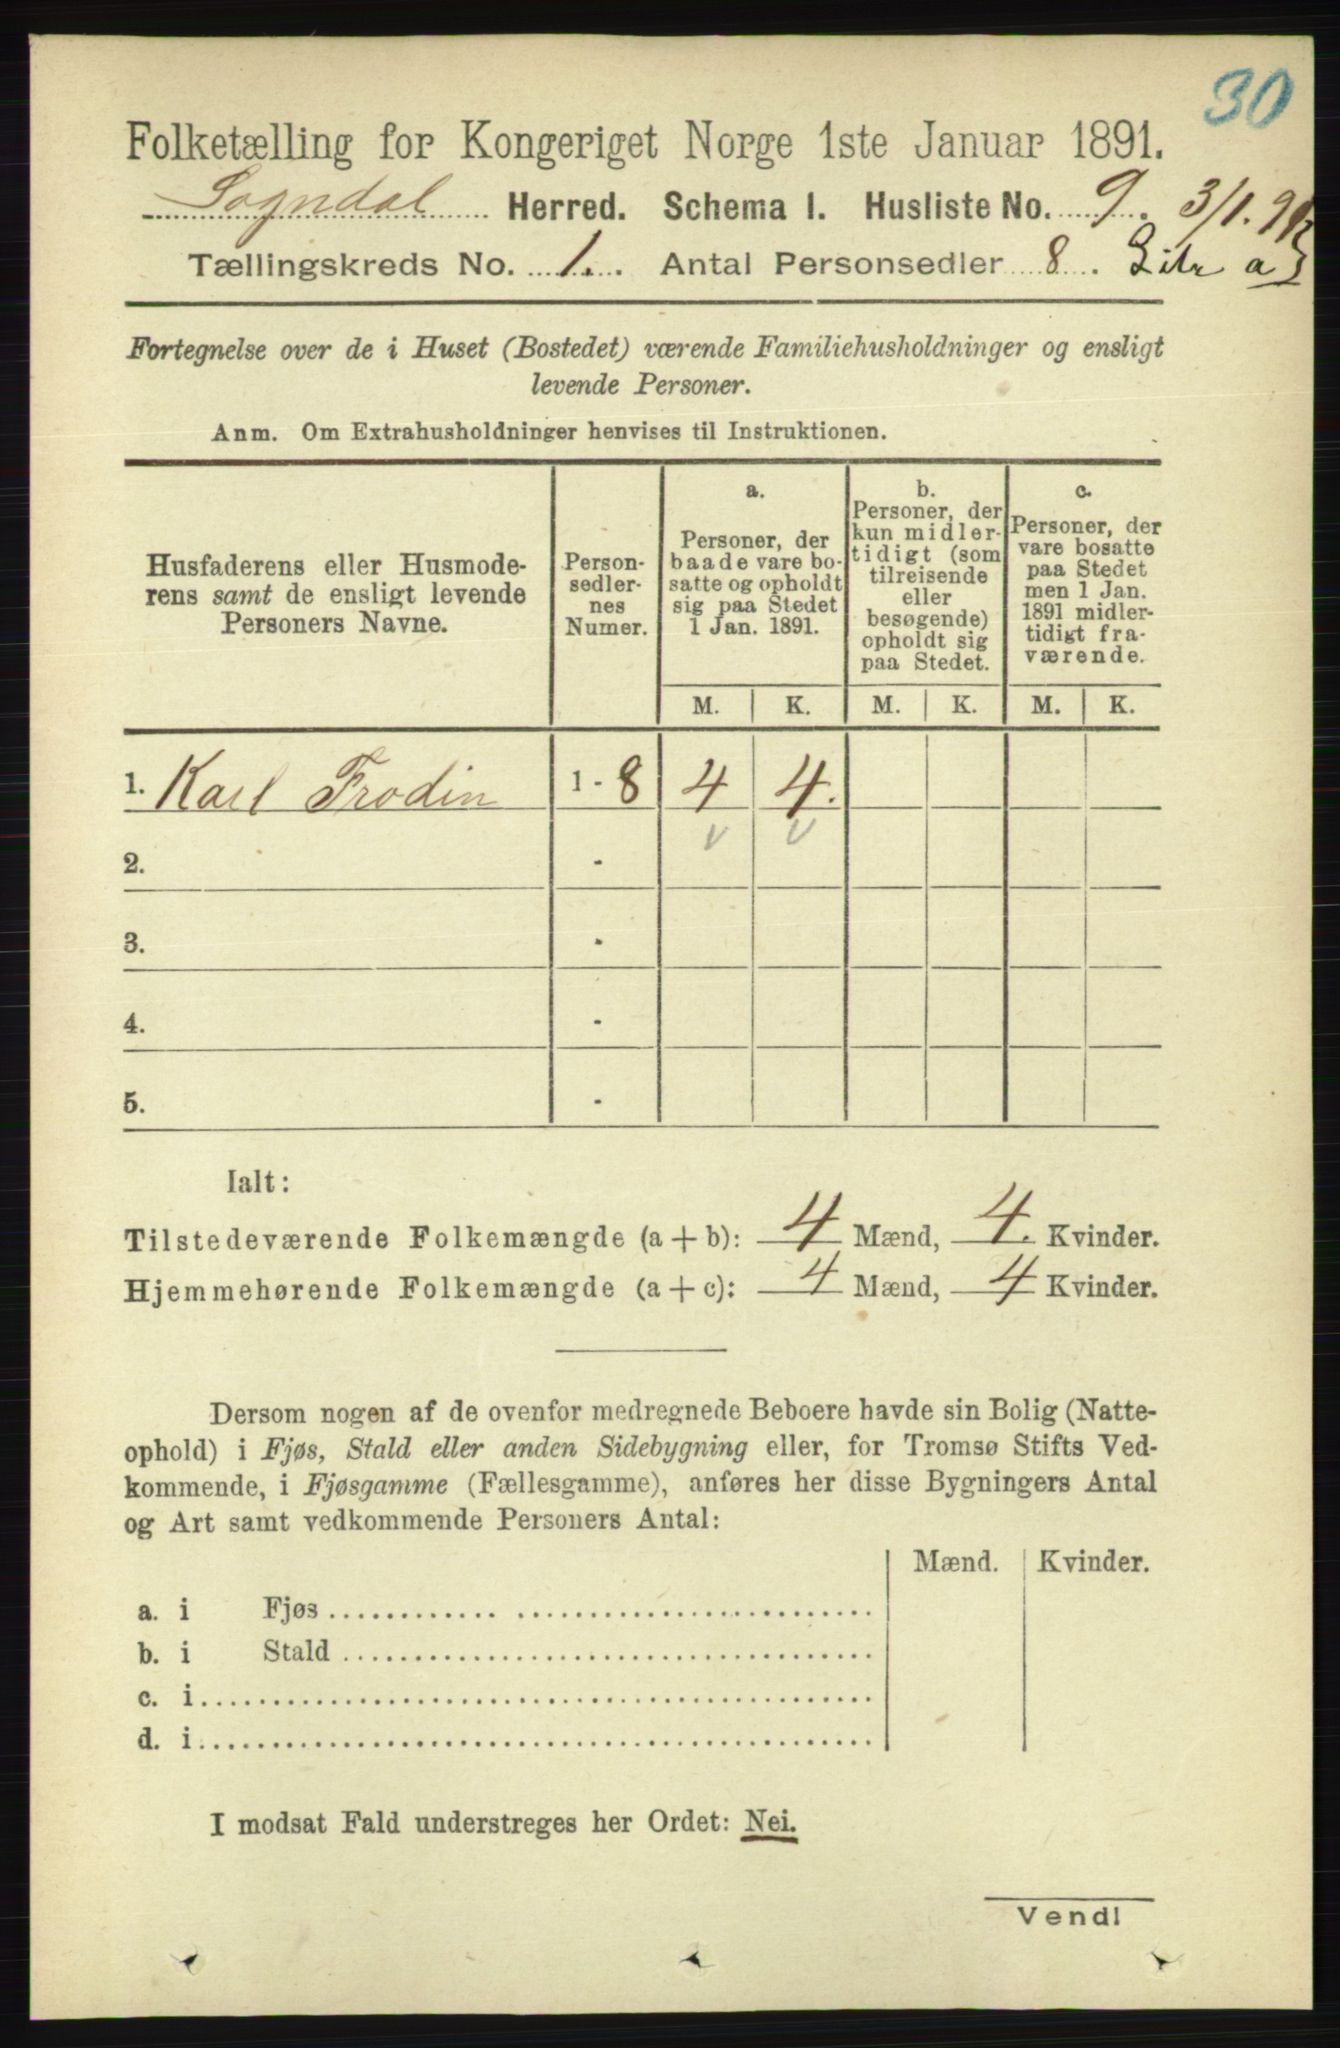 30
Folketælling for Kongeriget Norge 1ste Januar 1891.
Sogndal Herred. Schema I. Husliste No. 9. 3/1. 91
Tællingskreds No. 1. Antal Personsedler 8. Litr a
Fortegnelse over de i Huset (Bostedet) værende Familiehusholdninger og ensligt
levende Personer.
Anm. Om Extrahusholdninger henvises til Instruktionen.
Husfaderens eller Husmode-
rens samt de ensligt levende
Personers Navne.
Person-
sedler-
nes
Numer.
a.
Personer, der
baade vare bo-
satte og opholdt
sig paa Stedet
1 Jan. 1891.
b.
Personer, der
kun midler-
tidigt (som
tilreisende
eller
besøgende)
opholdt sig
paa Stedet.
c.
Personer, der
vare bosatte
paa Stedet
men 1 Jan.
1891 midler-
tidigt fra-
værende.
M. K. M. K. M. K.
1. Karl Frodin 1 - 8 4 4.
2. -
3. -
4. -
5. -
Ialt:
Tilstedeværende Folkemængde (a + b): 4 Mænd, 4. Kvinder.
Hjemmehørende Folkemængde (a + c): 4 Mænd, 4 Kvinder.
Dersom nogen af de ovenfor medregnede Beboere havde sin Bolig (Natte-
ophold) i Fjøs, Stald eller anden Sidebygning eller, for Tromsø Stifts Ved-
kommende, i Fjøsgamme (Fællesgamme), anføres her disse Bygningers Antal
og Art samt vedkommende Personers Antal:
Mænd. Kvinder.
a. i Fjøs
b. i Stald
c. i
d. i
I modsat Fald understreges her Ordet: Nei.
Vend!